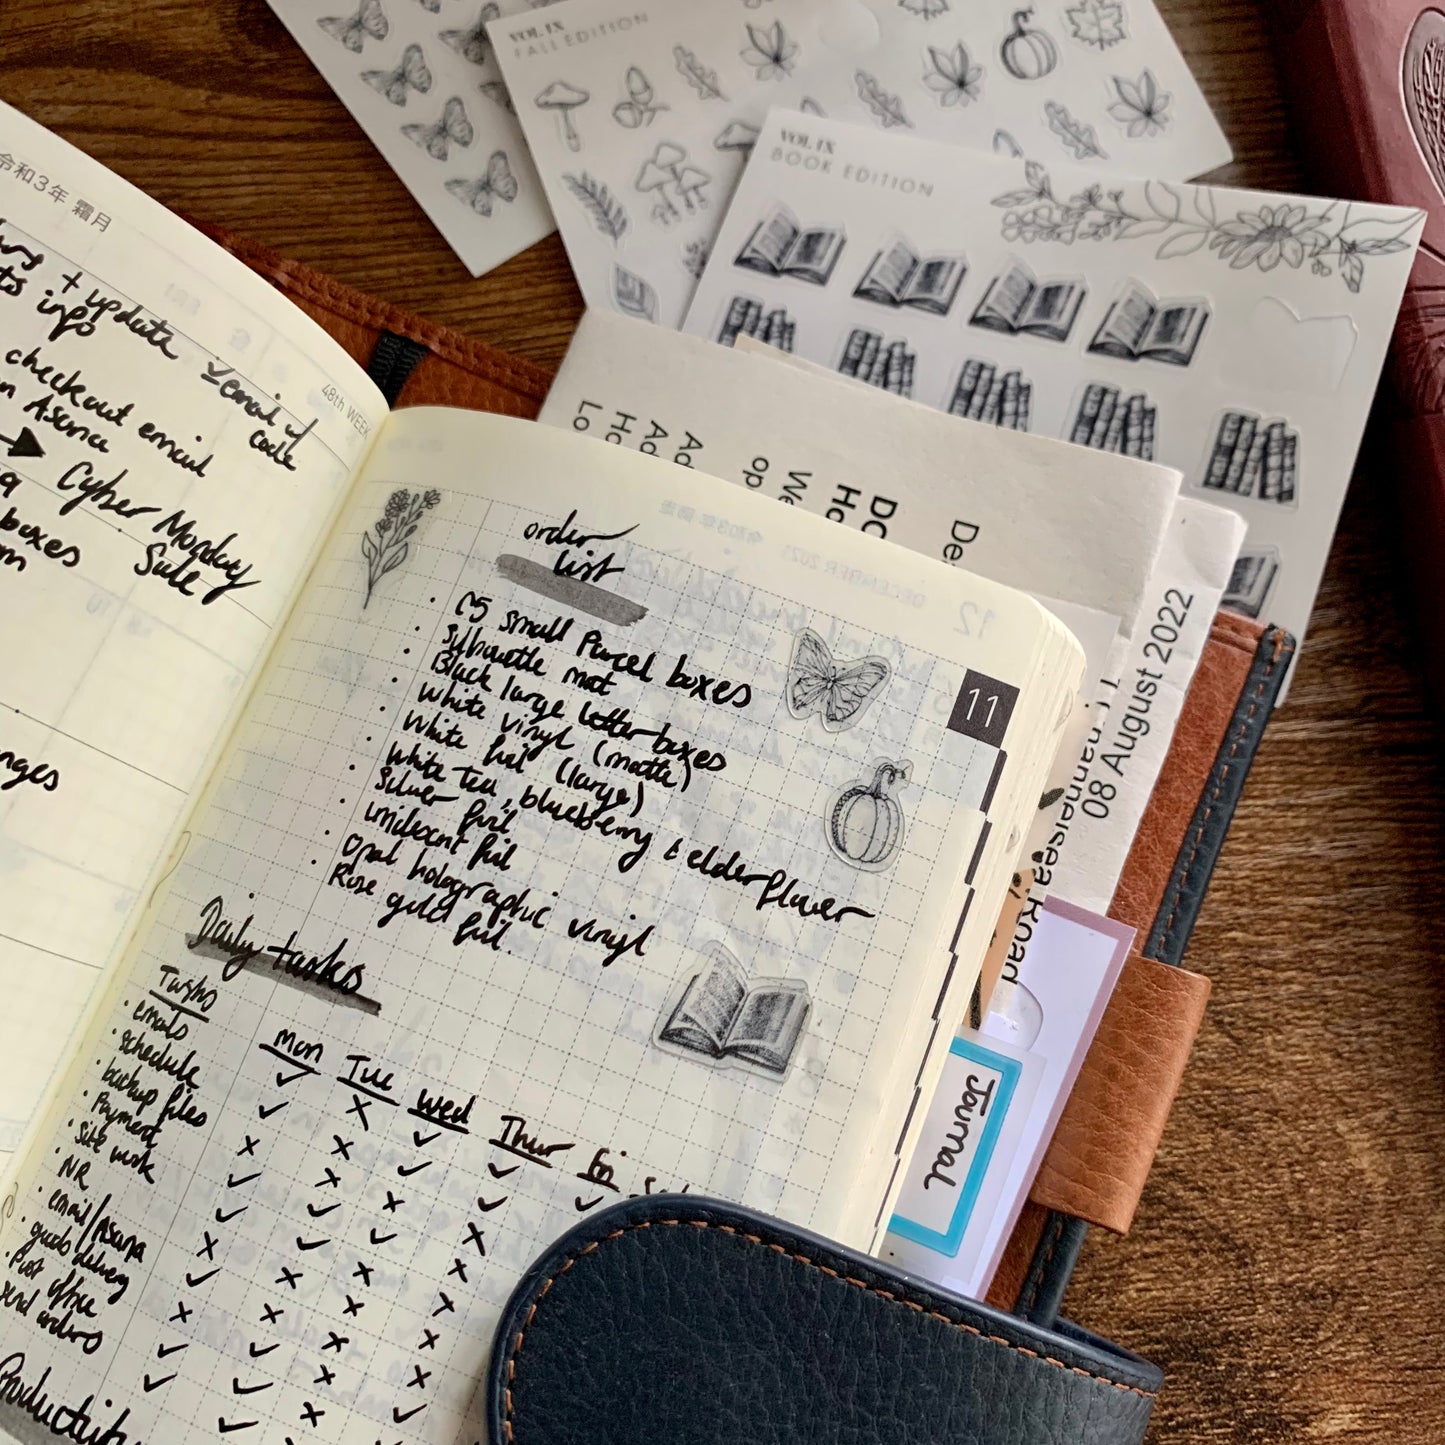 VOL. IX
FALL EDITION
VOL. IX
BOOK EDITION
令和3年 霜月
48th WEEK
+ update
info
email w/
code
checkout email
Asana
Cyber Monday
Sale
boxes
order
list
C5 small Parcel boxes
Silhouette mat
Black large letter boxes
white vinyl (matte)
white foil (large)
white tea, blueberry & elderflower
silver foil
iridescent foil
Opal holographic vinyl
Rose gold foil.
11
12
DECEMBER 2021
Daily tasks
Tasks
Mon Tue Wed Thur Fri
emails ✓ X ✓ ✓ ✓
schedule
backup files
Payment
site work
NR
email/Asana
goods delivery
Post office
send orders
Productivity
Lo
Ho
Ad
Ad
op
We
Ho
DO
De
08 August 2022
Road
Journal